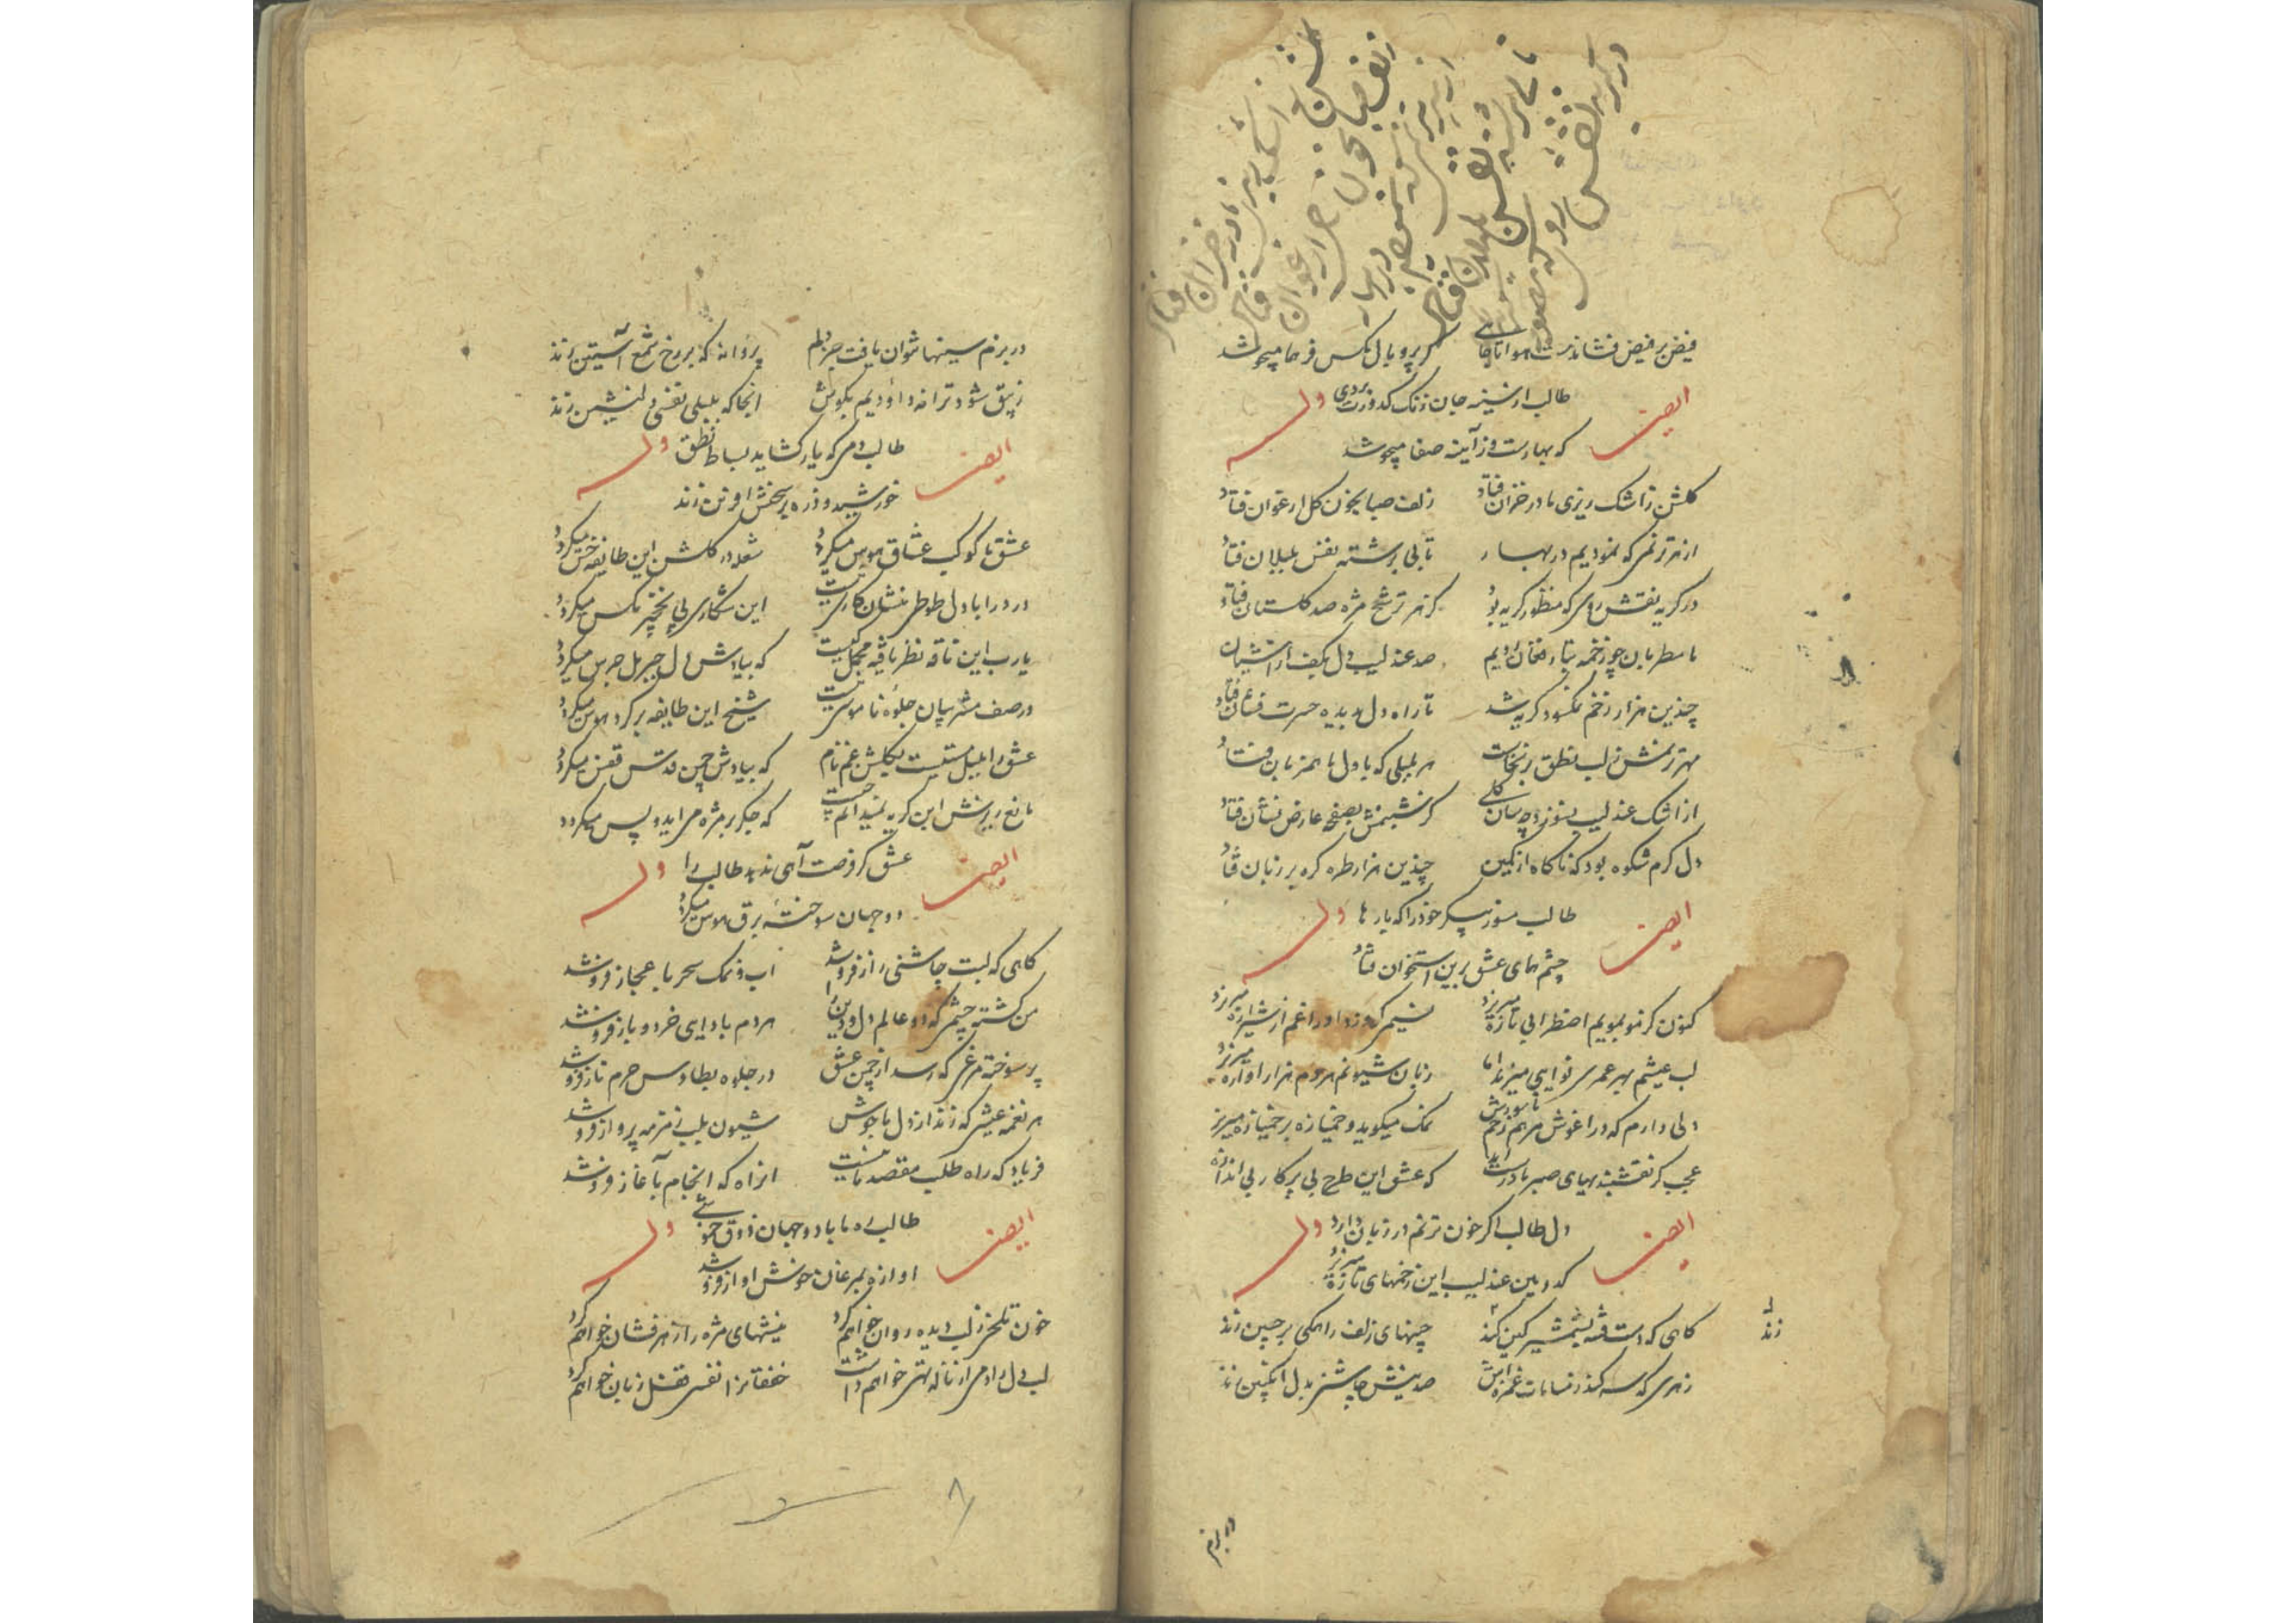 فیض بر فیض فشاندست هوا تا جائی که پر و بال مکس فر هما میجوشد
طالب از سینه جان زنک کدورت بردی
ایضا وله
که بهارست و ز آینه صفا میجوشد
کلشن ز اشک ریزی ما در خزان فتاد زلف صبا بخون کل ارغوان فتاد
از هر ترنمی که نمودیم در بهار تابی برشته نفس بلبلان فتاد
در کریه نقش روی که منظور کریه بود کز هر ترشح مژه صد کلستان فتاد
با مطربان چو زخمه بتار فغان زدیم صد عندلیب دل بکف از آشیان فتاد
چندین هزار زخم نمکسود کریه شد تا راه دل بدیده حسرت فشان فتاد
مهر ترنمش ز لب نطق برنخاست هر بلبلی که با دل ما همزبان فتاد
از اشک عندلیب نسوزد چسان کلی کز شبنمش بصفحه عارض نشان فتاد
دل کرم شکوه بود که ناکاه از کمین چندین هزار طره کره بر زبان فتاد
طالب مسوز پیکر خود را که بارها
ایضا وله
چشم همای عشق برین استخوان فتاد
کنون کز مو بمویم اضطرابی تازه میریزد نسیمی کر وزد اوراق غم از شیرازه میریزد
لب عیشم بهر عمری نوایی میزند اما زبان شیونم هر دم هزار آوازه میریزد
دلی دارم که در آغوش مرهم زخم ناسورش نمک میکوید و خمیازه بر خمیازه میریزد
عجب کر نقشبندیهای صبر ما درست آید که عشق این طرح بی پرکار بی اندازه
دل طالب اکر خون ترنم در زبان دارد
ایضا وله
که در بین عندلیب این زخمهای تازه میریزد
کاهی که دست فتنه بشمشیر کین کند چینهای زلف را همکی بر جبین زند
زند
زهری که سر کند ز نبات غمزه‌اش صد نیش چاشنی بدل انکبین زند
در بزم
در بزم سینها نتوان یافت جز دلم پروانه که بر رخ شمع آستین زند
زیبق شود ترانه داودیم بکوش آنجا که بلبلی نفسی دلنشین زند
طالب دمی که یار کشاید بساط نطق
ایضا وله
خورشید و ذره بر سخنش آفرین زند
عشق با کوکب عشاق هوس میکردد شعله در کلشن این طایفه خس میکردد
درد را با دل طوطی منشان کاری نیست این شکاری پی نخچیر مکس میکردد
یا رب این ناقه نظر یافته محمل کیست که بیادش دل جبریل جرس میکردد
در صف مشربیان جلوه ناموسی نیست شیخ این طایفه بر کرد هوس میکردد
عشق را بلبل مستیست بکلشن غم نام که بیادش چمن قدس قفس میکردد
مانع ریزش این کریه نمیدانم چیست که جکر بر مژه می‌آید و پس میکردد
عشق کر فرصت آهی ندهد طالب را
ایضا وله
دو جهان سوخته برق هوس میکردد
کاهی که لبت چاشنی راز فروشد آب و نمک سحر باعجاز فروشد
من کشته چشمی که دو عالم دل و دین را هر دم بادایی خرد و باز فروشد
پر سوخته مرغی که رسد از چمن عشق در جلوه بطاوس حرم ناز فروشد
هر نغمه عیشی که زند از دل ما جوش شیون بلب زمزمه پرداز فروشد
فریاد که راه طلب مقصد ما نیست آن راه که انجام بآغاز فروشد
طالب ره ما باد و جهان ذوق خموشی
ایضا وله
آوازه بمرغان خوش آواز فروشد
خون تلخی ز لب دیده روان خواهم کرد نیشهای مژه را زهرفشان خواهم کرد
لب دل را دمی از ناله تهی خواهم داشت خفقانرا نفسی قفل زبان خواهم کرد
۸